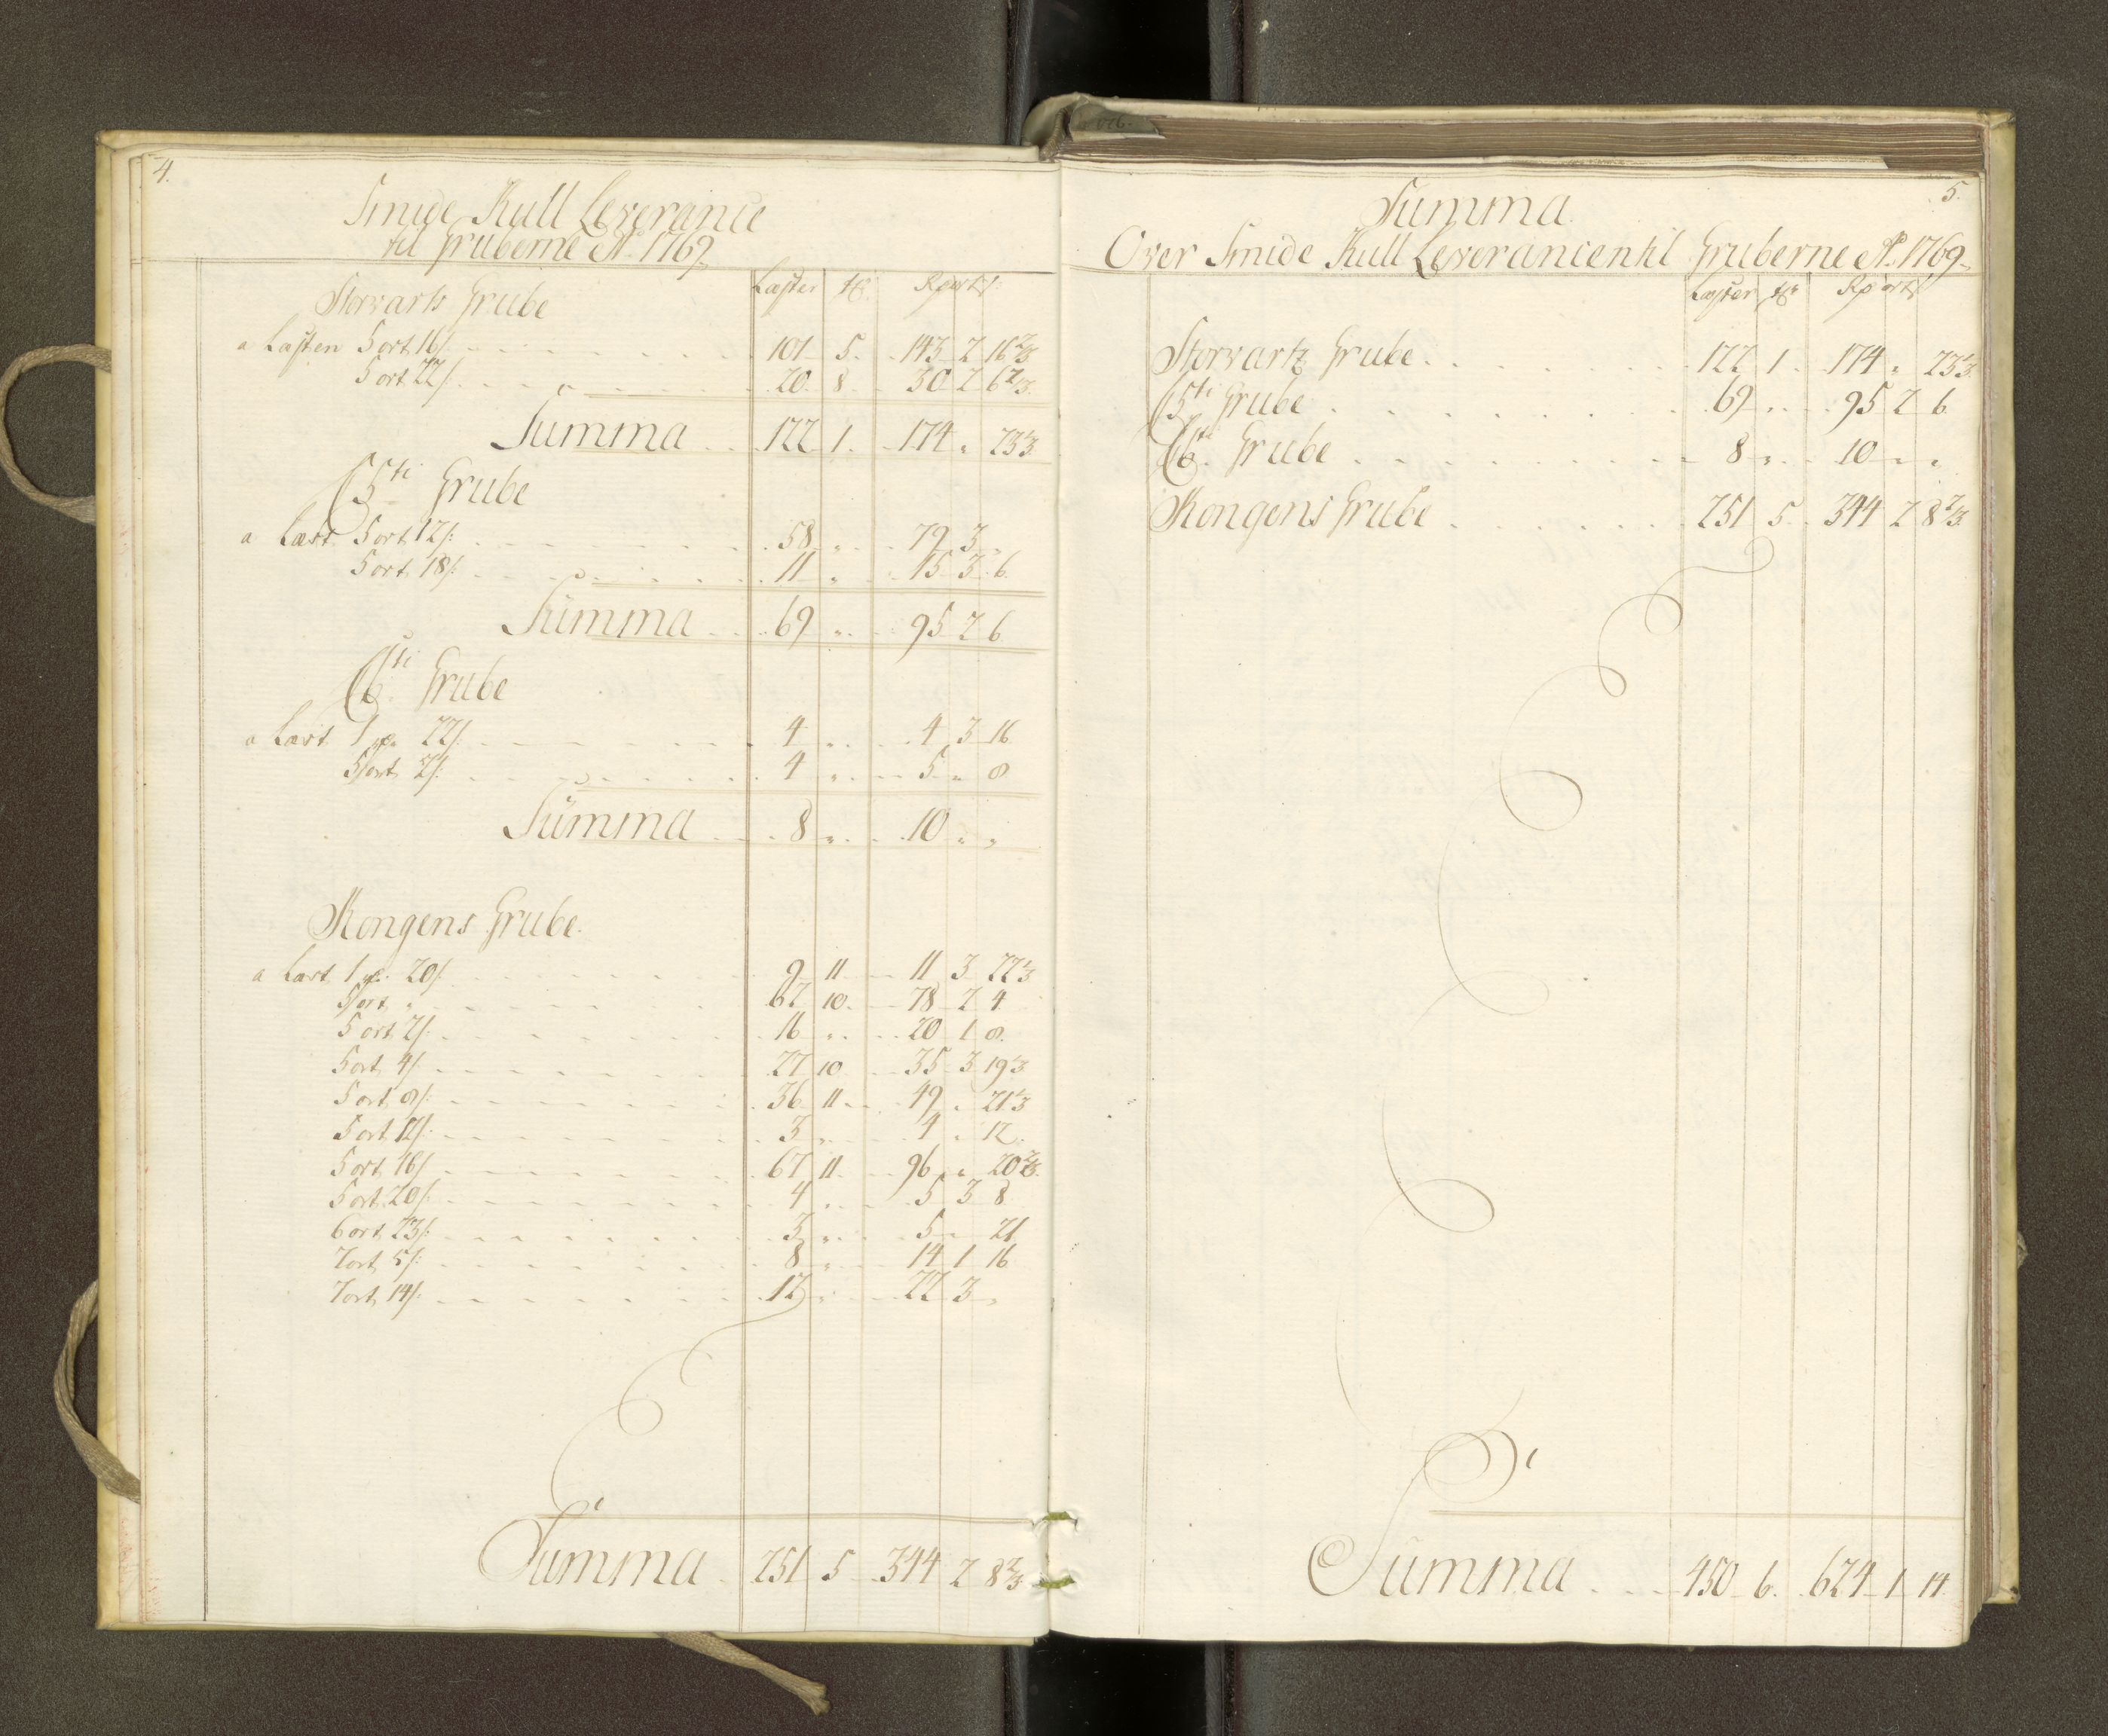 4.
Smide Kull Leverance
til Gruberne Ao. 1769
Laster tr. Rp ort s
Storvarts Grube
a Lasten 5 ort 16/: 101 5 143 2 16 2/3
5 ort 22/: 20 8 30 2 6 2/3
Summa 122 1 174 " 23 1/3
C 5ti Grube
a Last 5 ort 12/: 58 " 79 3 "
5 ort 18/: 11 " 15 3 6
Summa 69 " 95 2 6
C 6ti Grube
a Last 1 rp. 22/: 4 " 4 3 16
5 ort 2/: 4 " 5 " 8
Summa 8 " 10 " "
Kongens Grube
a Last 1 rp. 20/: 9 11 11 3 22 1/3
5 ort " 62 10 78 2 4
5 ort 2/: 16 " 20 1 8
5 ort 4/: 27 10 35 3 19 1/3
5 ort 8/: 36 11 49 " 21 1/3
5 ort 12/: 3 " 4 " 12
5 ort 16/: 67 11 96 " 20 2/3
5 ort 20/: 4 " 5 3 8
6 ort 23/: 3 " 5 " 21
7 ort 5/: 8 " 14 1 16
7 ort 14/: 12 " 22 3 "
Summa 251 5 344 2 8 2/3
5.
Summa
Over Smide Kull Leverancen til Gruberne Ao. 1769
Laster tr Rp ort s
Storvartz Grube 122 1 174 " 23 1/3
C 5ti Grube 69 " 95 2 6
C 6ti Grube 8 " 10 " "
Kongens Grube 251 5 344 2 8 2/3
Summa 450 6 624 1 14